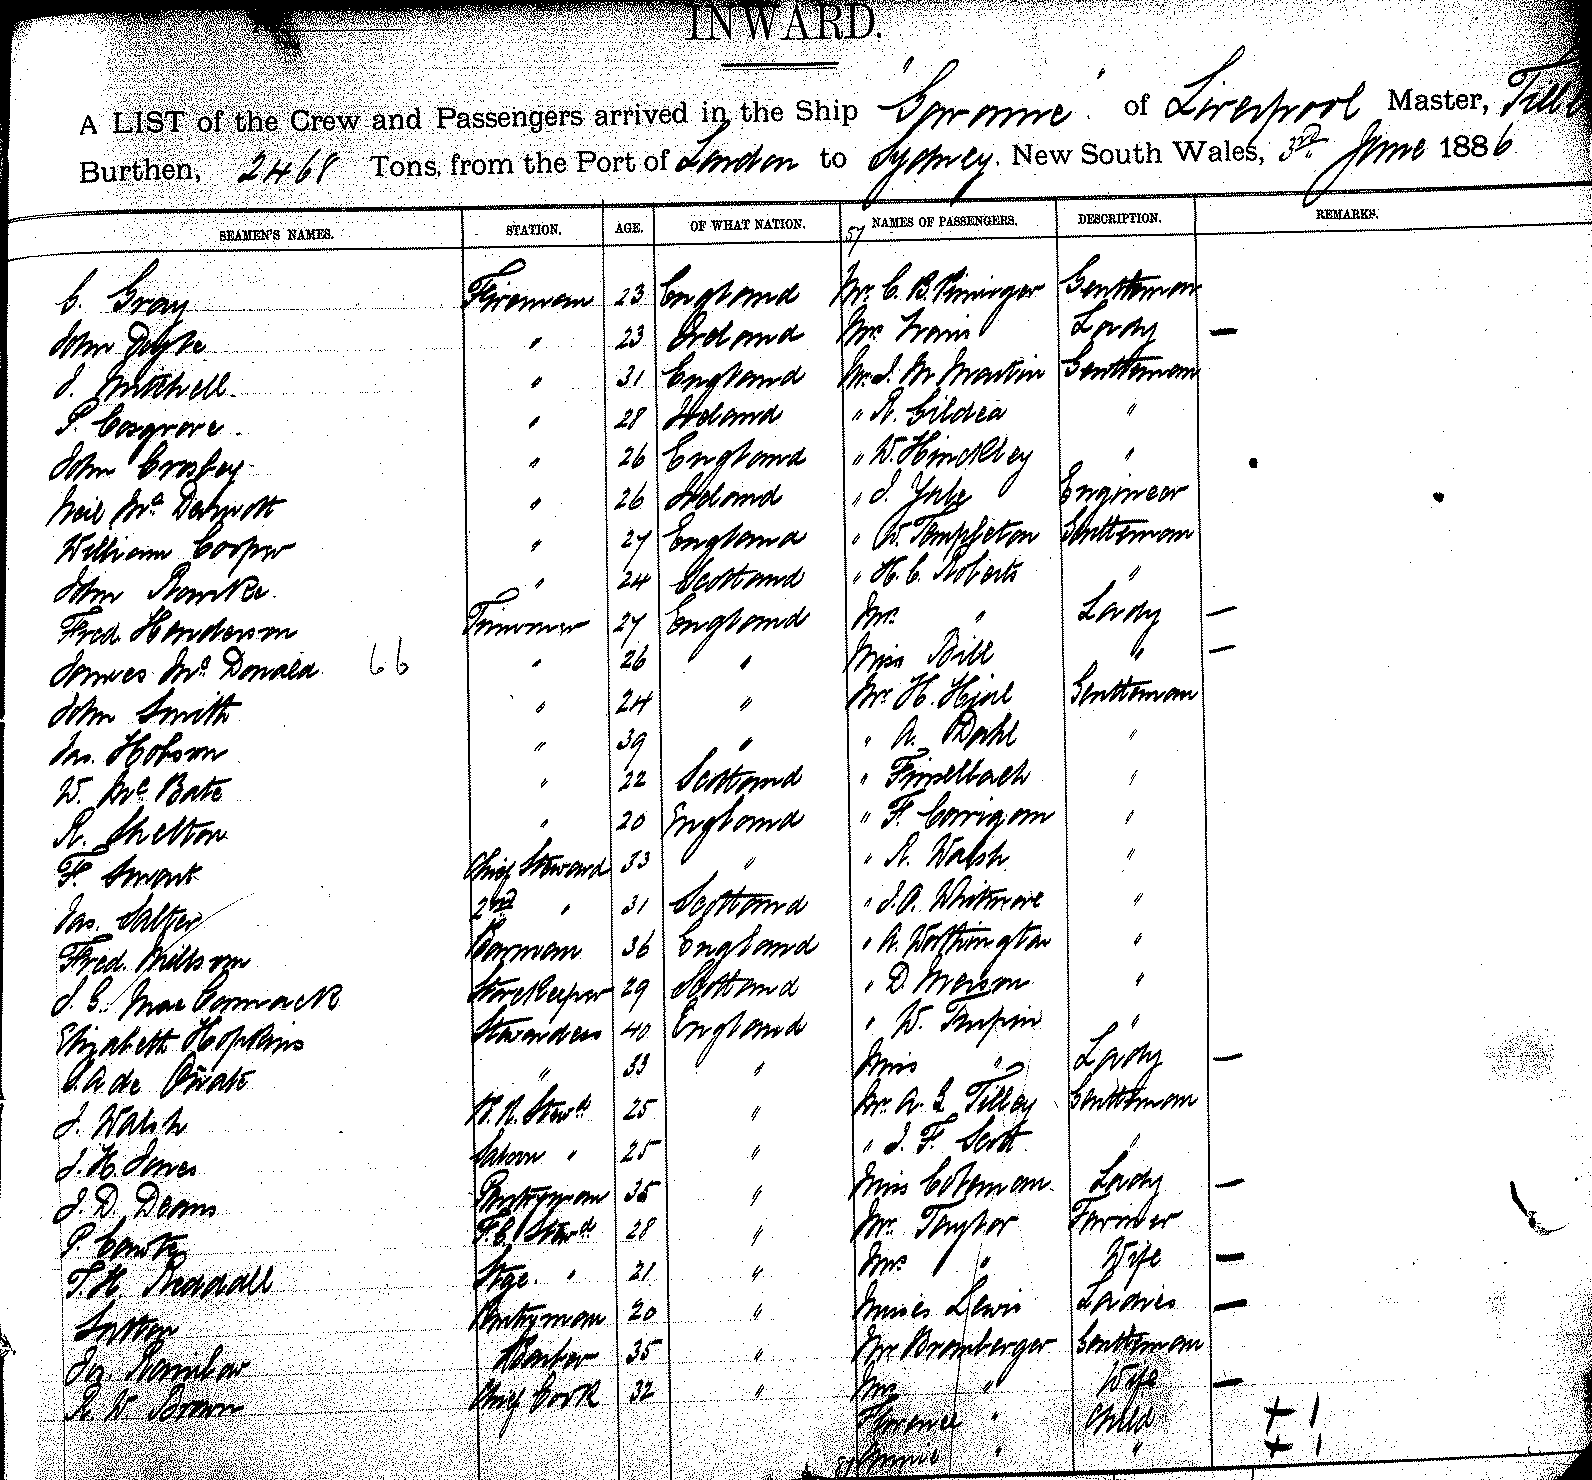 INWARD.
A LIST of the Crew and Passengers arrived in the Ship "Garonne" of Liverpool Master,
Burthen, 2468 Tons, from the Port of London to Sydney. New South Wales, 3rd June 1886
SEAMEN'S NAMES. STATION. AGE. OF WHAT NATION. NAMES OF PASSENGERS. DESCRIPTION. REMARKS.
57
C. Gray Fireman 23 England Mr. C. B. Gentleman
John " 23 Ireland Mrs. Lady —
J. Mitchell " 31 England Mr. J. M. Martin Gentleman
P. Cosgrove " 28 Ireland " R. Gildea "
John Crosby " 26 England " W. Hinckley "
Neil Mc Dermott " 26 Ireland " J. Yale Engineer
William Cooper " 27 England " W. Templeton Gentleman
John Rourke " 24 Scotland " H. C. Roberts "
Fred Henderson Trimmer 27 England Mrs. " Lady —
James Mc Donald 66 " 26 " Miss Bill " —
John Smith " 24 " Mr. H. Gentleman
Jas. Hobson " 39 " " A. Dahl "
W. Mc Bate " 22 Scotland " "
R. Shelton " 20 England " F. Corrigan "
F. Smart Chief Steward 33 " " R. Walsh "
Jas. Salter 2nd " 31 Scotland " J. A. Whitmore "
Fred. Millson Barman 36 England " A. Worthington "
J. C. Mac Cormack Storekeeper 29 Scotland " D. "
Elizabeth Hopkins Stewardess 40 England " W. "
" 33 " Miss " Lady —
J. Walsh Stewd 25 " Mr. A. Tilley Gentleman
J. H. Jones Saloon " 25 " " J. F. Scott "
J. D. Deans Pantryman 35 " Miss Coleman Lady —
P. Stewd 28 " Mr. Taylor Farmer
T. H. Stge. " 21 " Mrs " Wife —
Pantryman 20 " Misses Lewis Ladies —
Barber 35 " Mr Bromberger Gentleman
R. W. Brown Chief Cook 32 " Mrs " Wife —
Florence " Child + 1
" " + 1